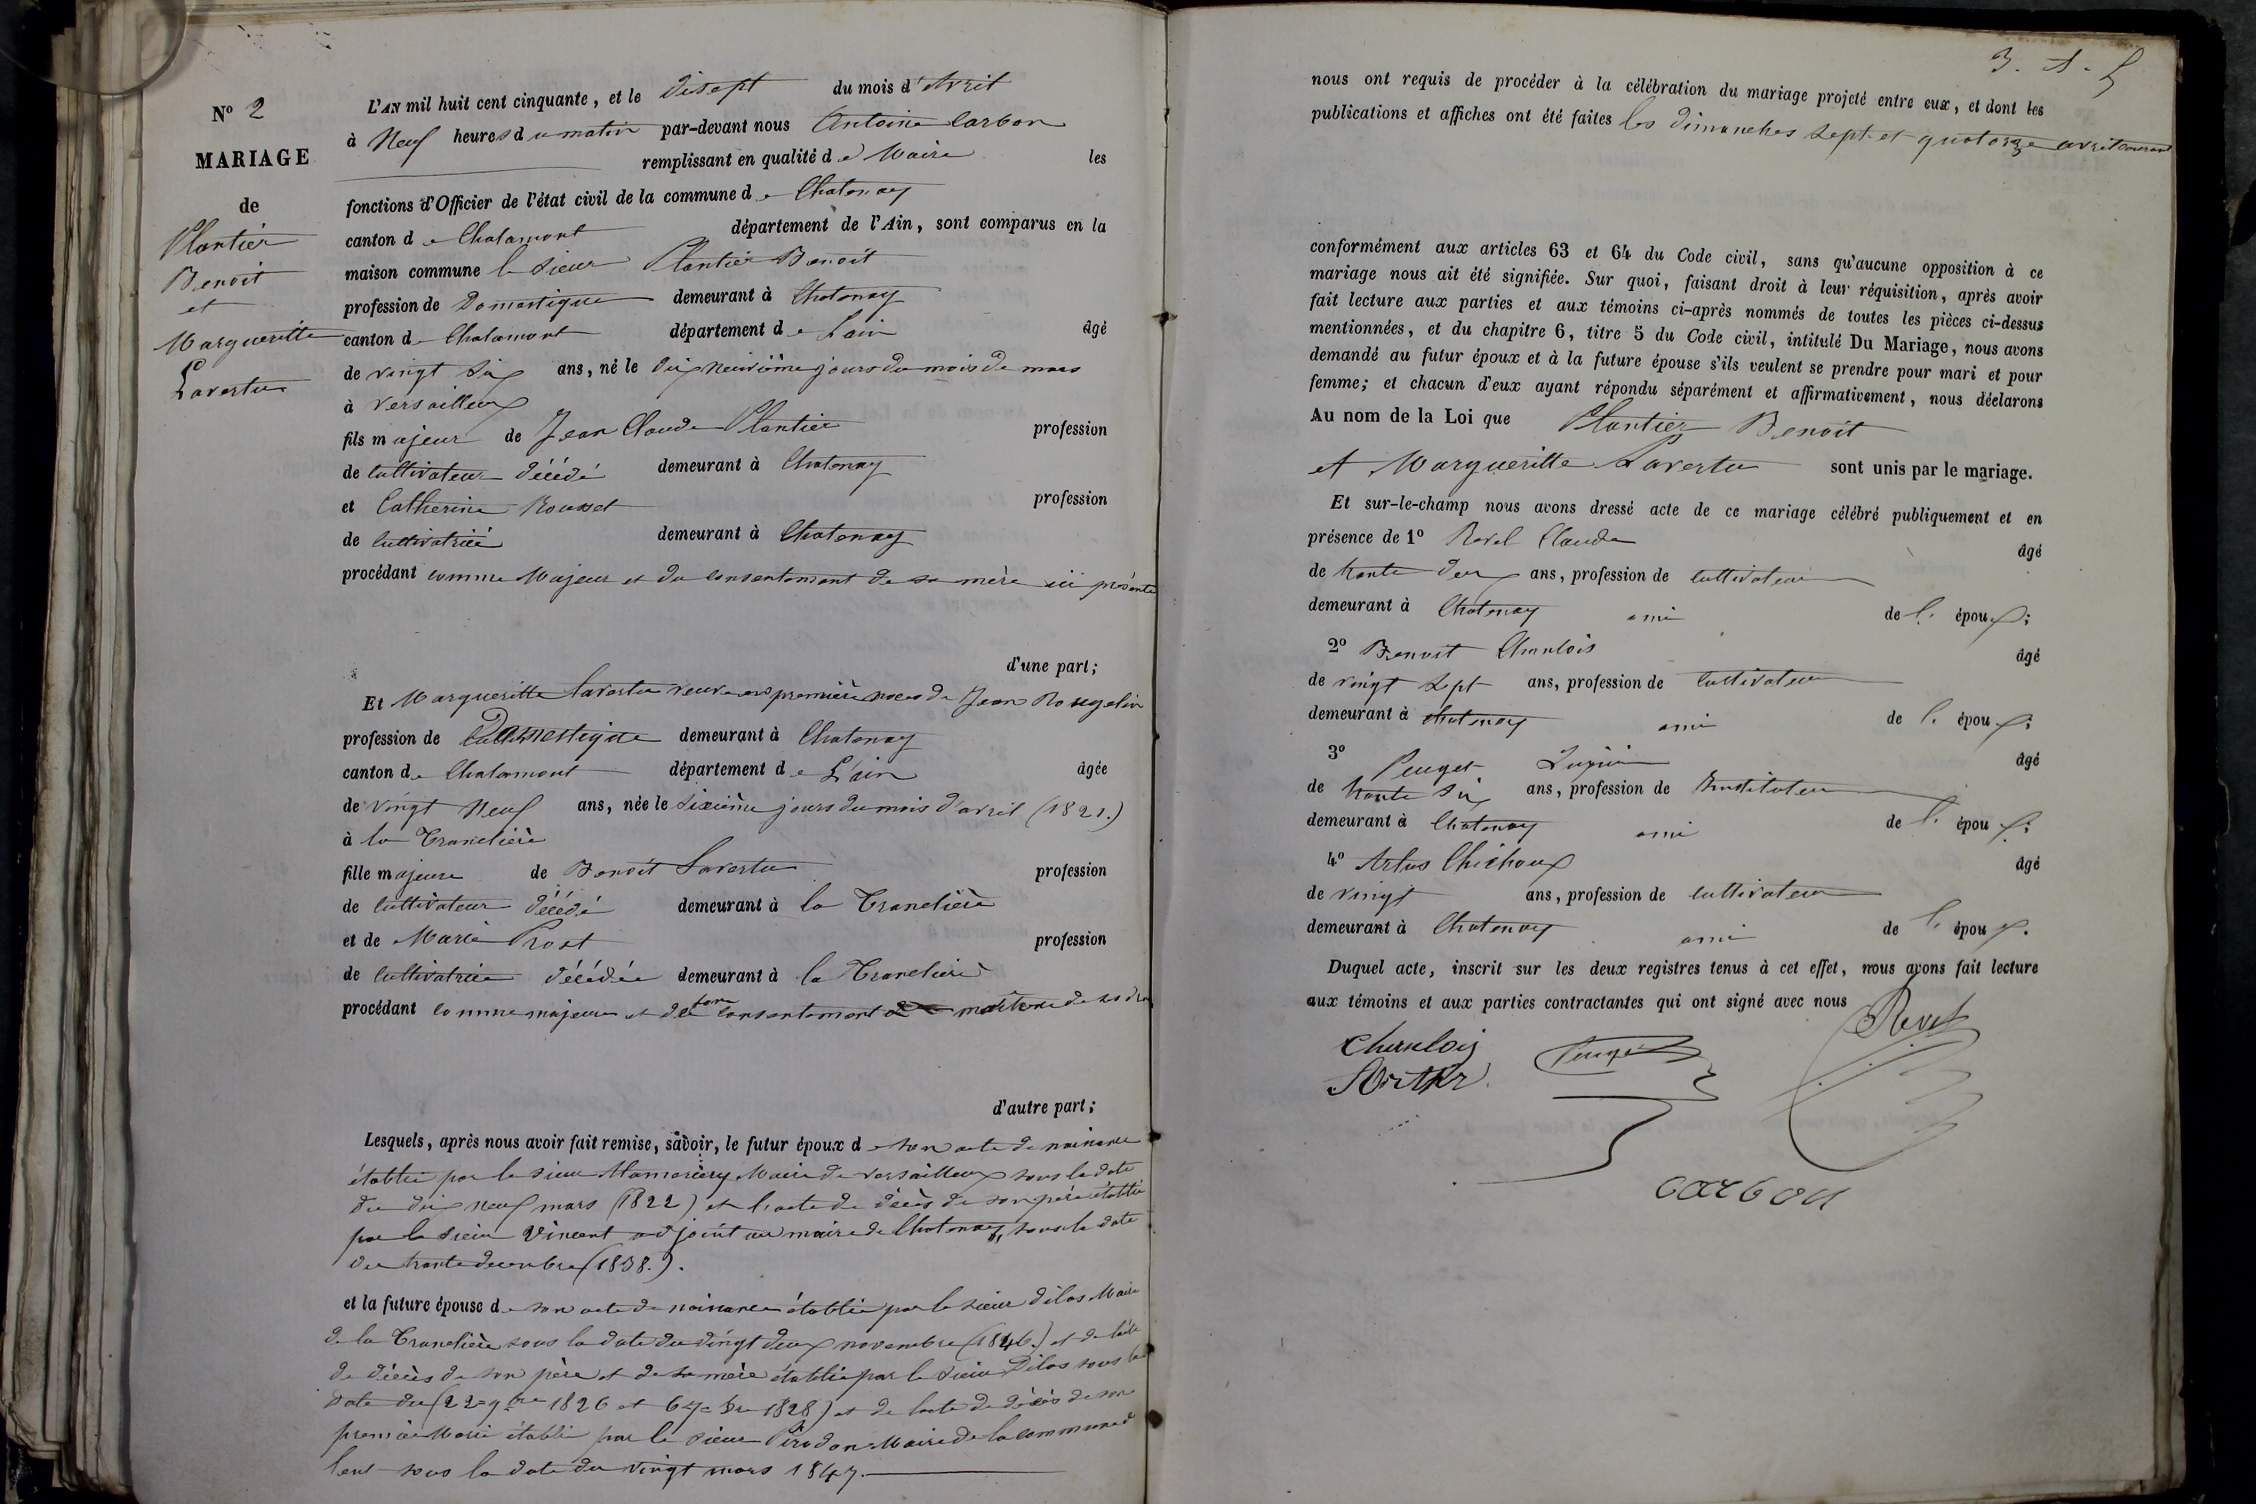 N° 2
MARIAGE
de
Plantier
Benoit
et
Margueritte
Lavertu
L'AN mil huit cent cinquante, et le disept du mois d'Avril
à Neuf heures du matin par-devant nous Antoine Carbon
remplissant en qualité de Maire les
fonctions d'Officier de l'état civil de la commune de Chatenay
canton de Chalamont département de l'Ain, sont comparus en la
maison commune le sieur Plantier Benoit
profession de Domestique demeurant à Chatenay
canton de Chalamont département de L'ain âgé
de vingt six ans, né le dix neuvième jours du mois de mars
à Versailleux
fils majeur de Jean Claude Plantier profession
de cultivateur décédé demeurant à Chatenay
et Catherine Rousset profession
de cultivatrice demeurant à Chatenay
procédant comme Majeur et du consentement de sa mère ici présente
d'une part;
Et Margueritte Lavertu veuve en première noces de Jean Rongelin
profession de Domestique demeurant à Chatenay
canton de Chalamont département de L'ain âgée
de vingt Neuf ans, née le sixième jours du mois d'avril (1821.)
à la Tranclière
fille majeure de Benoît Lavertu profession
de cultivateur décédé demeurant à la Tranclière
et de Marie Prost profession
de cultivatrice décédée demeurant à la Tranclière
procédant comme majeure et de son consentement maitresse de ses
d'autre part;
Lesquels, après nous avoir fait remise, savoir, le futur époux de son acte de naisance
établie par le sieur Maire de versailleux sous la date
du dix neuf mars (1822) et l'acte de décès de son père établie
par le sieur Vincent adjoint au maire de Chatenay, sous la date
du trente decembre (1838.).
et la future épouse de son acte de naisance établie par le sieur Dilas Maire
de la Tranclière sous la date du vingt deux novembre (1846.) et de l'acte
de décès de son père et de sa mère établie par le sieur Dilas sous la
date du (22 9bre 1826 et 6 1828) et de l'acte de décès de son
premier Marie établi par le sieur Pirodon Maire de la commune de
lent sous la date du vingt mars 1847.
nous ont requis de procéder à la célébration du mariage projeté entre eux, et dont les
publications et affiches ont été faites les dimanches sept et quatorze avril courant
conformément aux articles 63 et 64 du Code civil, sans qu'aucune opposition à ce
mariage nous ait été signifiée. Sur quoi, faisant droit à leur réquisition, après avoir
fait lecture aux parties et aux témoins ci-après nommés de toutes les pièces ci-dessus
mentionnées, et du chapitre 6, titre 5 du Code civil, intitulé Du Mariage, nous avons
demandé au futur époux et à la future épouse s'ils veulent se prendre pour mari et pour
femme; et chacun d'eux ayant répondu séparément et affirmativement, nous déclarons
Au nom de la Loi que Plantier Benoit
et Margueritte Lavertu sont unis par le mariage.
Et sur-le-champ nous avons dressé acte de ce mariage célébré publiquement et en
présence de 1° Revel Claude âgé
de trente deux ans, profession de cultivateur
demeurant à Chatenay ami de l' époux;
2° Benoit Chanlois âgé
de vingt sept ans, profession de cultivateur
demeurant à chatenay ami de l' époux;
3° Peuget âgé
de trente six ans, profession de Instituteur
demeurant à Chatenay ami de l' époux;
4° Artus Chichoux âgé
de vingt ans, profession de cultivateur
demeurant à Chatenay ami de l' époux.
Duquel acte, inscrit sur les deux registres tenus à cet effet, nous avons fait lecture
aux témoins et aux parties contractantes qui ont signé avec nous
Revel
Chanlois
Peuget
carbon